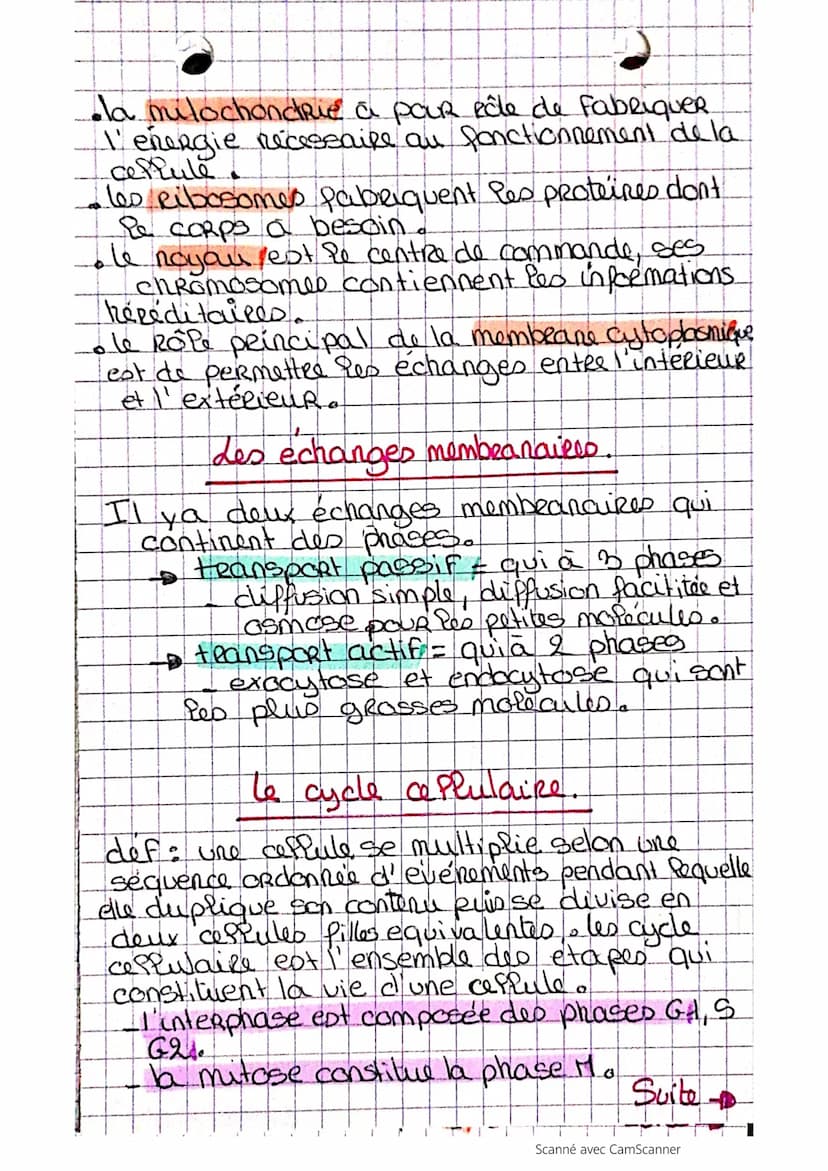 .la mitochondrie a pour rôle de fabriquer
l'énergie nécessaire au fonctionnement de la
cellule.
.les ribosomes fabriquent les protéines dont
le corps a besoin.
.le noyau est le centre de commande, ses
chromosomes contiennent les informations
héréditaires.
.le rôle principal de la membrane cytoplasmique
est de permettre les échanges entre l'intérieur
et l'extérieur.
des échanges membranaires.
Il y a deux échanges membranaires qui
continent des phases.
→ transport passif = qui à 3 phases
- diffusion simple, diffusion facilitée et
osmose pour les petites molécules.
→ transport actif = qui à 2 phases
- exocytose et endocytose qui sont
les plus grosses molécules.
le cycle cellulaire.
déf : une cellule se multiplie selon une
séquence ordonnée d'événements pendant lequelle
elle duplique son contenu puis se divise en
deux cellules filles equivalentes. les cycle
cellulaire est l'ensemble des étapes qui
constituent la vie d'une cellule.
- l'interphase est composée des phases G1, S
G2.
- la mitose constitue la phase M.
Suite →
Scanné avec CamScanner